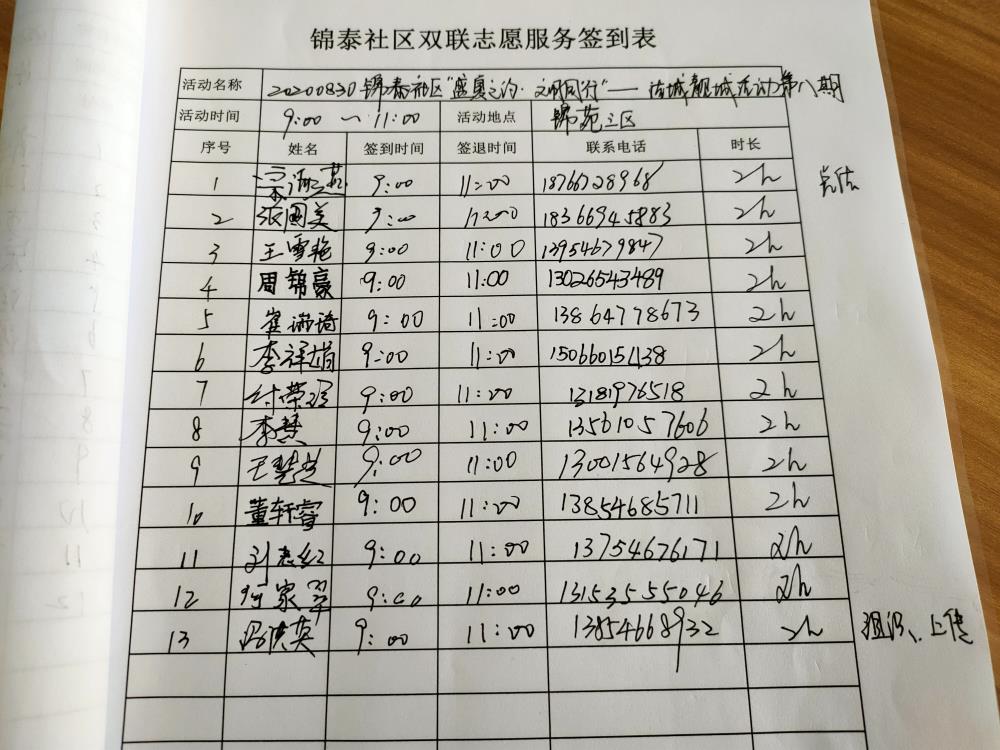 锦泰社区双联志愿服务签到表
活动名称 20200830锦泰社区"盛夏之约·文明同行"——洁城靓城活动第八期
活动时间 9:00 — 11:00 活动地点 锦苑三区
序号 姓名 签到时间 签退时间 联系电话 时长
1 9:00 11:00 18766728968 2h 总结
2 张国美 9:00 11:00 18366945883 2h
3 王雪艳 9:00 11:00 13954679847 2h
4 周锦豪 9:00 11:00 13026543489 2h
5 崔瑞琦 9:00 11:00 13864778673 2h
6 李祥娟 9:00 11:00 15066015438 2h
7 付荣 9:00 11:00 13181976518 2h
8 李慧 9:00 11:00 13561057606 2h
9 王慧 9:00 11:00 13001564928 2h
10 董轩睿 9:00 11:00 13854685711 2h
11 刘志红 9:00 11:00 13754676171 2h
12 家翠 9:00 11:00 13153555046 2h
13 冯洪英 9:00 11:00 13854668932 2h 组织、上传